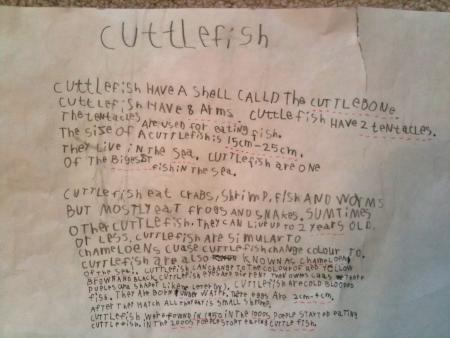 CUTTLEFISH
CUTTLEFISH HAVE A SHELL CALLD THE CUTTLEBONE.
CUTTLEFISH HAVE 8 ARMS. CUTTLEFISH HAVE 2 TENTACLES.
THE TENTACLES ARE USED FOR EATING FISH.
THE SIZE OF A CUTTLEFISH IS 15CM-25CM.
THEY LIVE IN THE SEA. CUTTLEFISH ARE ONE
OF THE BIGEST FISH IN THE SEA.
CUTTLEFISH EAT CRABS, SHRIMP, FISH AND WORMS
BUT MOSTLY EAT FROGS AND SNAKES. SUMTIMES
OTHER CUTTLEFISH. THEY CAN LIVE UP TO 2 YEARS OLD.
OR LESS. CUTTLEFISH ARE SIMULAR TO
CHAMELOENS CUASE CUTTLEFISH CHANGE COLOUR TO.
CUTTLEFISH ARE ALSO KNOWN AS CHAMELOENS
OF THE SEA. CUTTLEFISH CAN CHANGE TO THE COLOUR OF RED YELLOW
BROWN AND BLACK. CUTTLEFISH EYES ARE DIFFERENT THEN OWRS CUAS THERE
PUPLES ARE SHAPET LIKE LETTER (W). CUTTLEFISH ARE COLD BLOODED
FISH. THEY ARE BORN UNDER WATER. THERE EGGS ARE 2CM-4CM.
AFTER THEY HATCH ALL THEY EAT IS SMALL SHRIMP.
CUTTLEFISH WERE FOUND IN 1950 IN THE 1000S PEOPLE STARTED EATING
CUTTLEFISH. IN THE 2000S PEOPLE START EATING CUTTLEFISH.